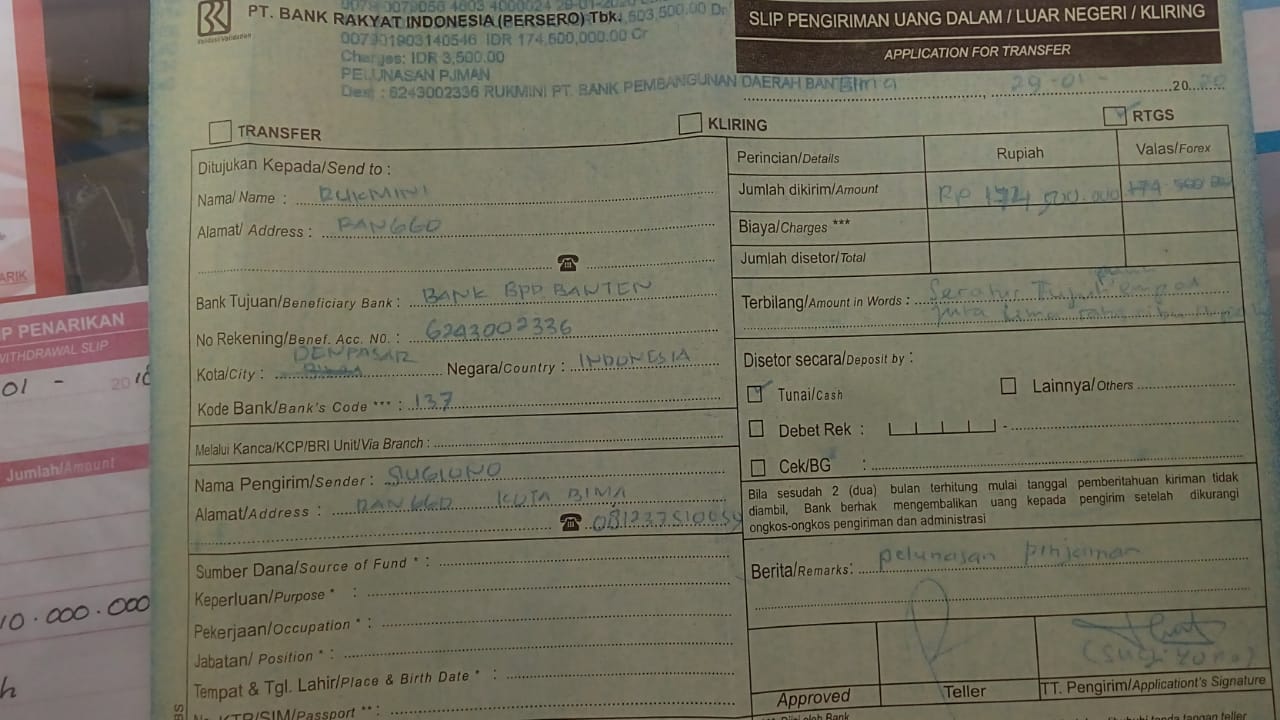 BRI
PT. BANK RAKYAT INDONESIA (PERSERO) Tbk.
503,500.00 Dr
007901903140546 IDR 174,500,000.00 Cr
Charges: IDR 3,500.00
PELUNASAN PJMAN
Dest : 6243002336 RUKMINI PT. BANK PEMBANGUNAN DAERAH BAN
SLIP PENGIRIMAN UANG DALAM / LUAR NEGERI / KLIRING
APPLICATION FOR TRANSFER
Bima, 29-01- 2020
TRANSFER KLIRING RTGS
Ditujukan Kepada/Send to :
Nama/ Name : RUKMINI
Alamat/ Address : RANGGO
Bank Tujuan/Beneficiary Bank : BANK BPP BANTEN
No Rekening/Benef. Acc. NO. : 6243002336
DENPASAR
Kota/City : Negara/Country : INDONESIA
Kode Bank/Bank's Code *** : 137
Melalui Kanca/KCP/BRI Unit/Via Branch :
Nama Pengirim/Sender : SUGIONO
Alamat/Address : RANGGO KOTA BIMA
Sumber Dana/Source of Fund * :
Keperluan/Purpose * :
Pekerjaan/Occupation * :
Jabatan/ Position * :
Tempat & Tgl. Lahir/Place & Birth Date * :
KTP/SIM/Passport ** :
Perincian/Details Rupiah Valas/Forex
Jumlah dikirim/Amount RP 174.500.000
Biaya/Charges ***
Jumlah disetor/Total
Terbilang/Amount in Words : Seratus Tujuh puluh empat
juta lima ratus ribu
Disetor secara/Deposit by :
Tunai/Cash Lainnya/Others
Debet Rek :
Cek/BG :
Bila sesudah 2 (dua) bulan terhitung mulai tanggal pemberitahuan kiriman tidak
diambil, Bank berhak mengembalikan uang kepada pengirim setelah dikurangi
ongkos-ongkos pengiriman dan administrasi
Berita/Remarks: pelunasan pinjaman
(Sugiyono)
Approved Teller TT. Pengirim/Application's Signature
ARIK
P PENARIKAN
WITHDRAWAL SLIP
01 - 2016
Jumlah/Amount
10.000.000